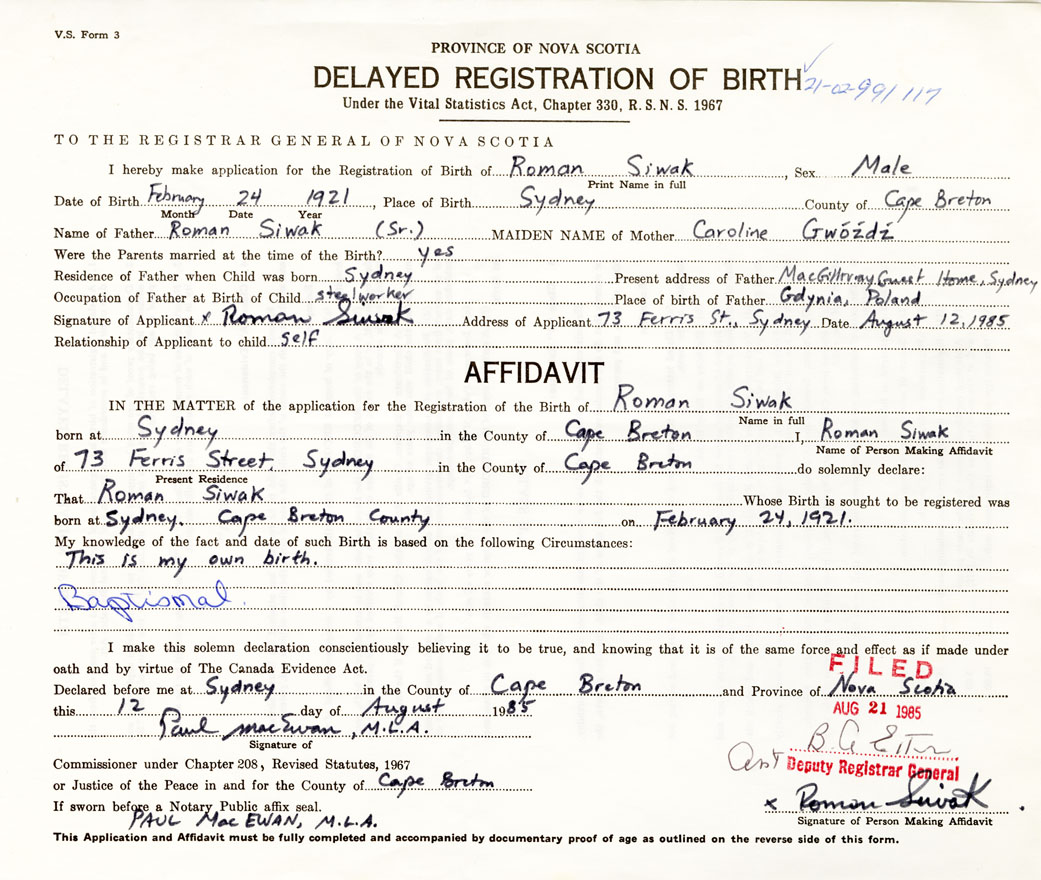 V.S. Form 3
PROVINCE OF NOVA SCOTIA
DELAYED REGISTRATION OF BIRTH
21-02-991117
Under the Vital Statistics Act, Chapter 330, R.S.N.S. 1967
TO THE REGISTRAR GENERAL OF NOVA SCOTIA
I hereby make application for the Registration of Birth of Roman Siwak, Sex Male
Print Name in full
Date of Birth February 24 1921, Place of Birth Sydney County of Cape Breton
Month Date Year
Name of Father Roman Siwak (Sr.) MAIDEN NAME of Mother Caroline Gwóźdź
Were the Parents married at the time of the Birth? yes
Residence of Father when Child was born Sydney Present address of Father MacGillivray Guest Home, Sydney
Occupation of Father at Birth of Child steelworker Place of birth of Father Gdynia, Poland
Signature of Applicant x Roman Siwak Address of Applicant 73 Ferris St., Sydney Date August 12, 1985
Relationship of Applicant to child self
AFFIDAVIT
IN THE MATTER of the application for the Registration of the Birth of Roman Siwak
Name in full
born at Sydney in the County of Cape Breton I, Roman Siwak
Name of Person Making Affidavit
of 73 Ferris Street, Sydney in the County of Cape Breton do solemnly declare:
Present Residence
That Roman Siwak Whose Birth is sought to be registered was
born at Sydney, Cape Breton County on February 24, 1921.
My knowledge of the fact and date of such Birth is based on the following Circumstances:
This is my own birth.
Baptismal
I make this solemn declaration conscientiously believing it to be true, and knowing that it is of the same force and effect as if made under
oath and by virtue of The Canada Evidence Act.
FILED
Declared before me at Sydney in the County of Cape Breton and Province of Nova Scotia
this 12 day of August 1985
AUG 21 1985
Paul MacEwan, M.L.A.
Signature of
Commissioner under Chapter 208, Revised Statutes, 1967
Deputy Registrar General
or Justice of the Peace in and for the County of Cape Breton
x Roman Siwak
If sworn before a Notary Public affix seal.
Signature of Person Making Affidavit
PAUL MacEWAN, M.L.A.
This Application and Affidavit must be fully completed and accompanied by documentary proof of age as outlined on the reverse side of this form.